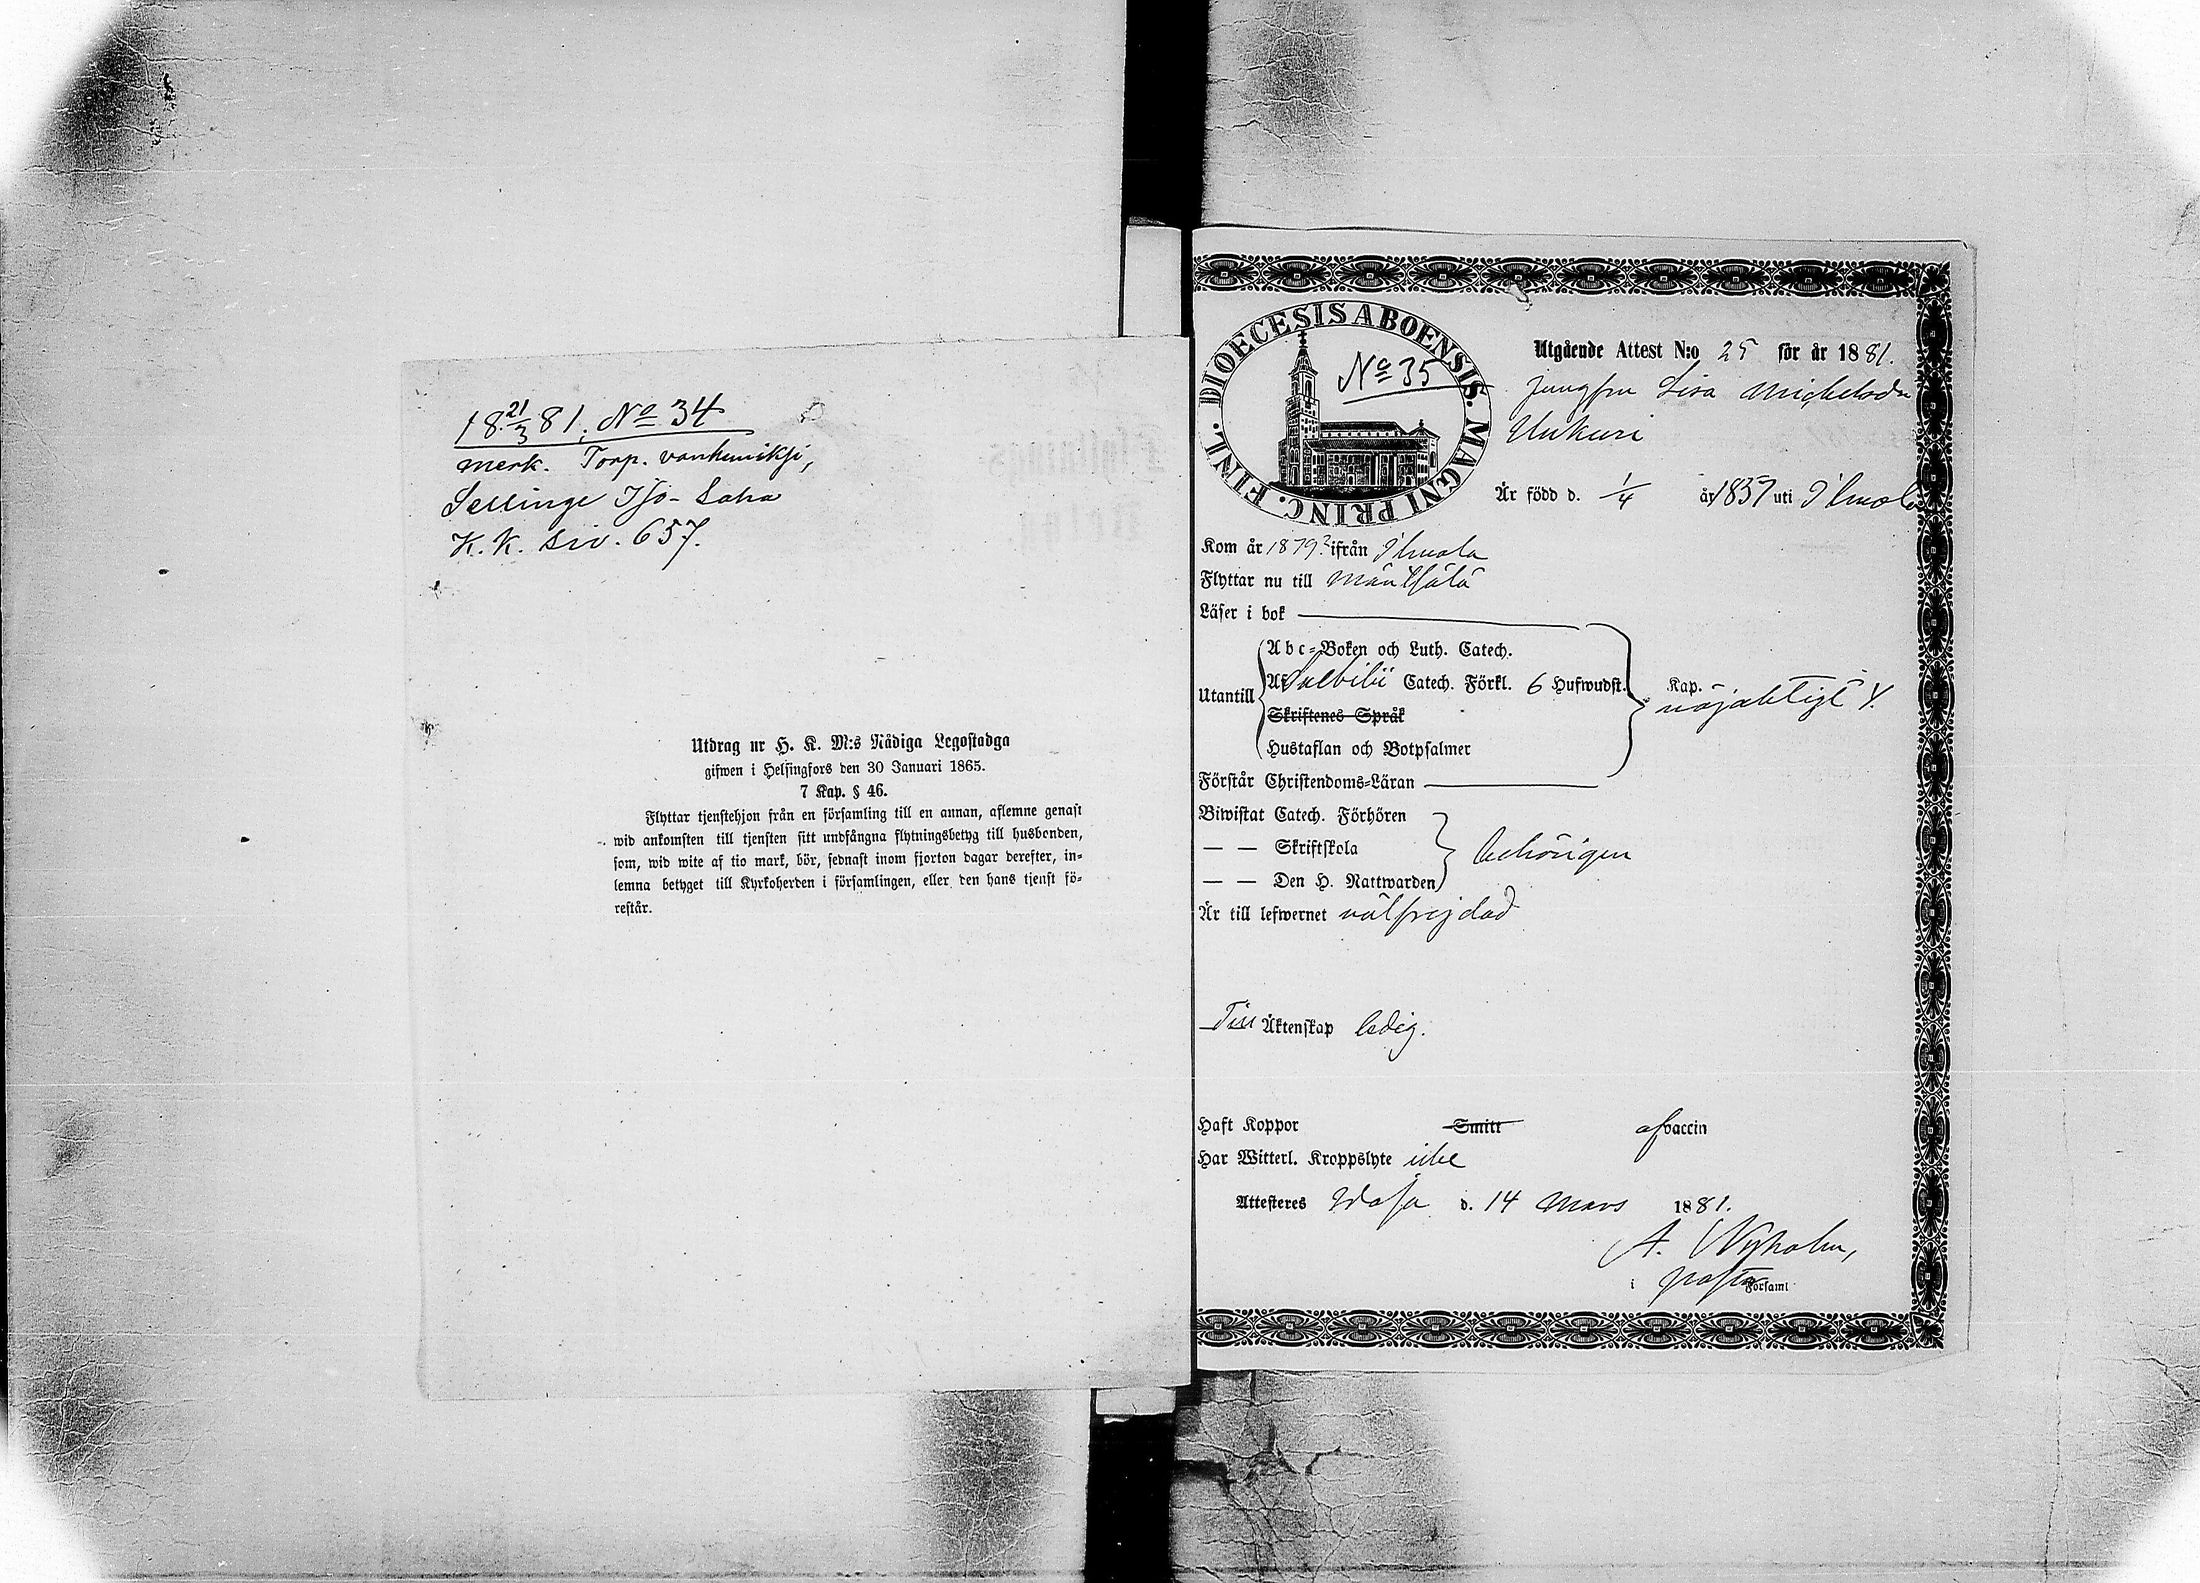 18 21/3 81. No 34
merk. Torp. vanhuwiksi,
Sellinge Iso-Saha
K. K. siv. 657.
Utdrag ur H. K. M:s Nådiga Legostadga
gifwen i Helsingfors den 30 Januari 1865.
7 Kap. § 46.
Flyttar tjenstehjon från en församling till en annan, aflemne genast
wid ankomsten till tjensten sitt undfångna flytningsbetyg till husbonden,
som, wid wite af tio mark, bör, sednast inom fjorton dagar derefter, in-
lemna betyget till Kyrkoherden i församlingen, eller den hans tjenst fö-
restår.
DIOECESIS ABOENSIS. MAGNI PRINC. FINL.
No 35
Utgående Attest N:o 25 för år 1881.
Jungfru Lisa Michelsdr
Unkuri
Är född d. 1/4 år 1837 uti Ilmola
Kom år 1879? ifrån Ilmola
Flyttar nu till Mäntsälä
Läser i bok
Abc-Boken och Luth. Catech.
Utantill Af Svebilii Catech. Förkl. 6 Hufwudst. Kap. nöjaktigt
Skriftenes Språk
Hustaflan och Botpsalmer
Förstår Christendoms-Läran
Biwistat Catech. Förhören
— — Skriftskola behörigen
— — Den H. Nattwarden
Är till lefwernet välfrejdad
Till Äktenskap ledig.
Haft Koppor Smitt af vaccin
Har Witterl. Kroppslyte icke
Attesteres Wasa d. 14 Mars 1881.
A. Nyholm,
i pastor Församl